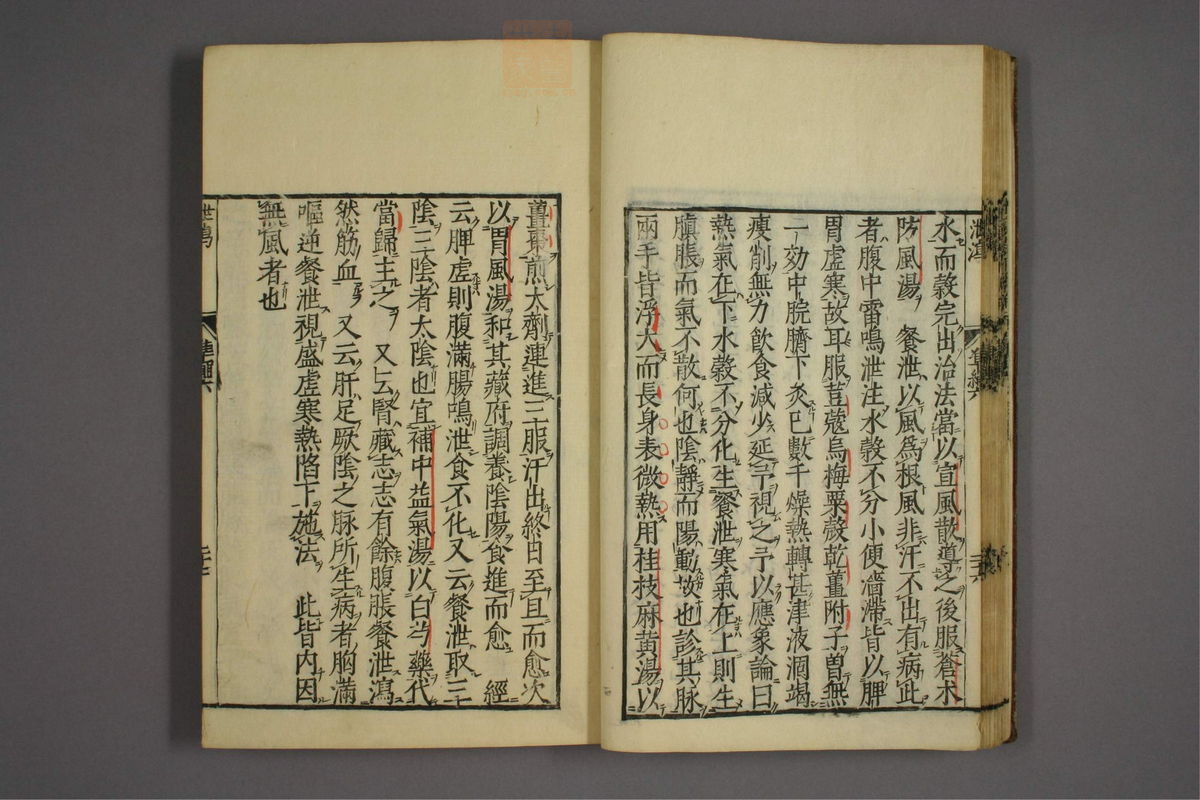 水而榖完出治法當以宣風散導之後服蒼朮
防風湯　飧泄以風爲根風非汗不出有病此
者腹中雷鳴泄注水榖不分小便濇滯皆以脾
胃虛寒故耳服荳蔻烏梅粟殼乾薑附子曽無
一効中脘臍下灸已數千燥熱轉甚津液涸竭
瘦削無力飲食減少延予視之予以應象論曰
熱氣在下水榖不分化生飧泄寒氣在上則生
䐜脹而氣不散何也陰靜而陽動故也診其脉
兩手皆浮大而長身表微熱用桂枝麻黄湯以
薑棗煎大劑連進三服汗出終日至旦而愈次
以胃風湯和其藏府調養陰陽食進而愈　經
云脾虛則腹滿腸鳴泄食不化又云飧泄取三
陰三陰者太陰也宜補中益氣湯以白芍藥代
當歸主之　又云腎藏志志有餘腹脹飧泄瀉
然筋血　又云肝足厥陰之脉所生病者胸滿
嘔逆飧泄視盛虛寒熱陷下施法　此皆内因
無風者也